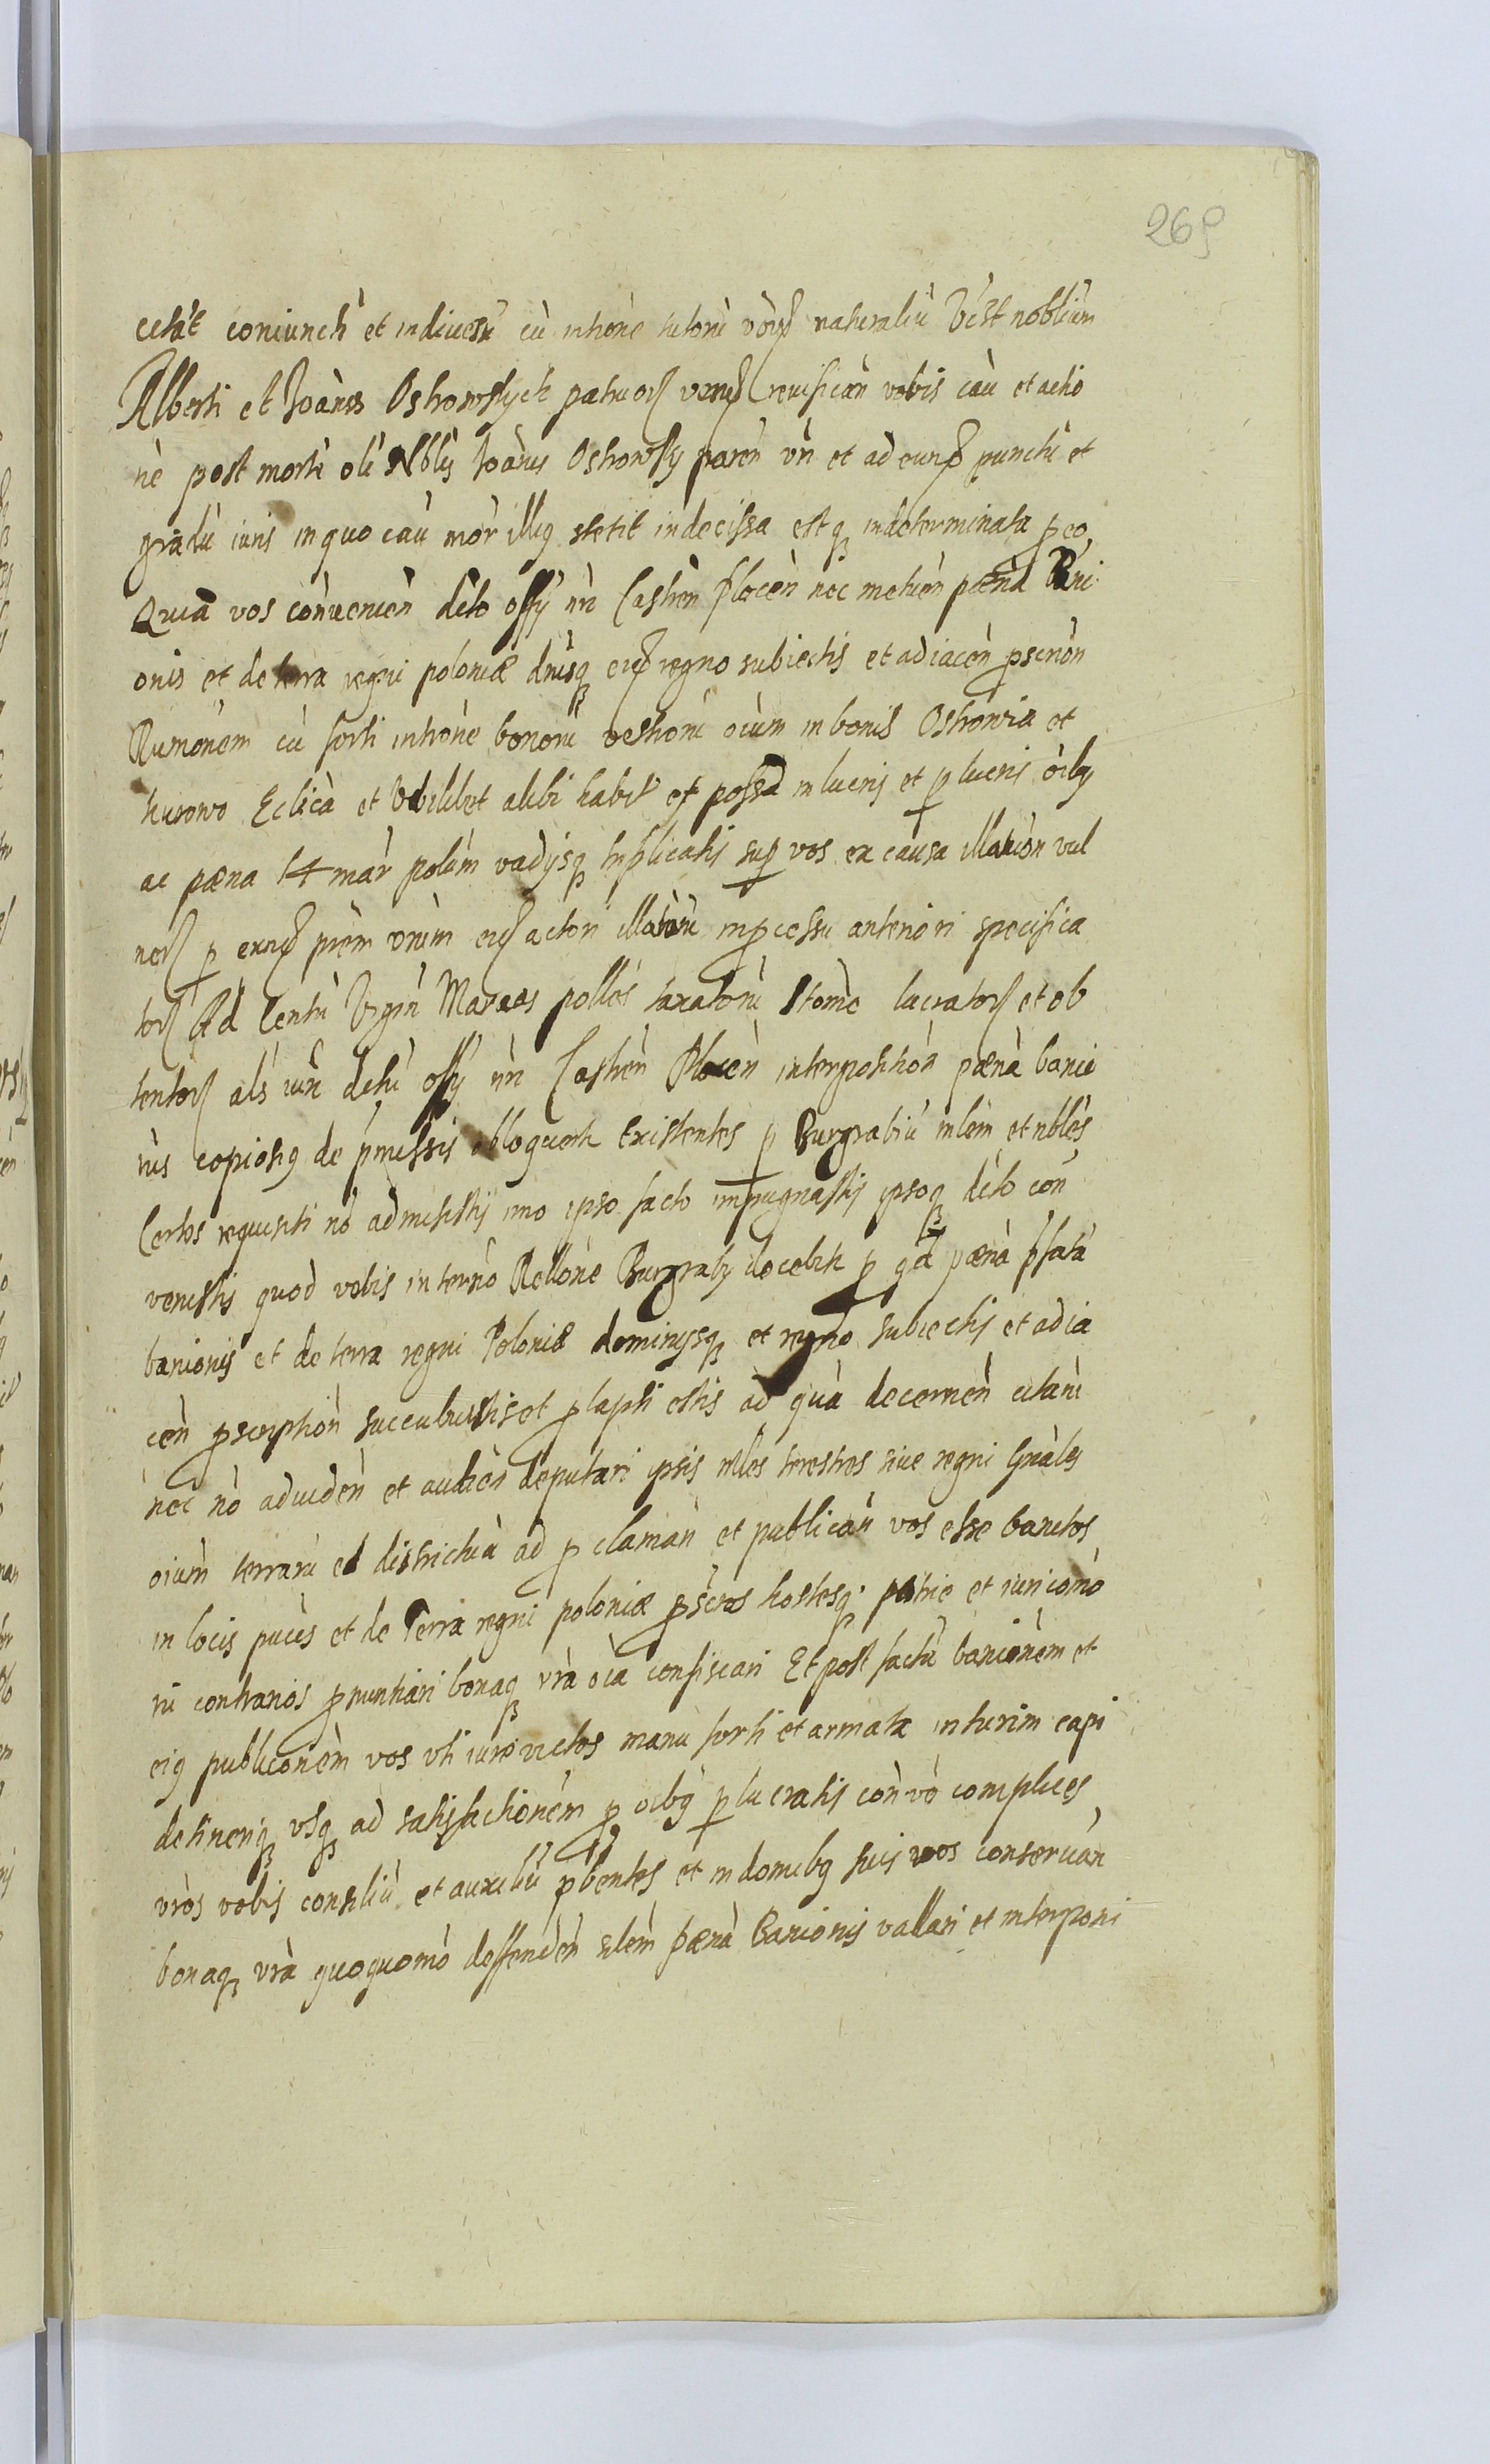 269
citat coniuncti et indiuisi cu intione tutoru vrorũ naturaliũ vist nobliũm
Alberti et Joañis Ostrowskych patruorũ vrorũ reuisican vobis cau et actio
nè post mortè oli Nblis Joañis Ostrowsky paren vri et ad eund punctũ et
gradũ iuris in quo cau mor illiq stetit indecissa estq indeterminata p eo
Quia vos conuenien dito offy nri Castren Plocen nec metuen pæna Bani
onis et de terra regni poloniæ dnisq eid regno subiectis et adiacen pscrion
Rumonem cù forti introne bonorũ vestrorũ oium in bonis Ostrowia et
kurowo Eclicà et vbilibet alibi habit et possd in lucris et p lucris oibq
ac pæna 14 mar polim vadysq triplicatis sup vos ex causa illatuon vul
nerũ p eund prem vrum eid actori illatorũ in pcessu anteriori specifica
torũ Ad Centũ Vgin Marcas pollos taxatorũ Itemq lucratorũ et ob
tentorũ als iuri dictu offy nri Castren Plocen interposition pænà banio
nis copiosiq de pmissis obloquert Existentes p Burgrabiũ mlem et nbles
Certos requisiti nò admisistis imo ipso facto impugnastis ipsoq dito con
venistis quod vobis in termo Rellone Burgraby docebit p qd pænà pfatà
banionis et de terra regni Poloniæ dominysq et regno subiectis et adia
cen pscription succubuistis et plapsi estis ad quà decernen citanũ
nec nò ad viden et audien deputari ipsis mles terestres siue regni Gnales
oium terraru et districtuũ ad pclaman et publican vos esse banitos
in locis pucis et de Terra regni poloniæ pscros hostesq patrie et iuri comò
ni contrarios pnuntiari bonaq vrà oia confiscari Et post factũ banionem et
eiq publiconem vos vti iure victos manù forti et armata interim capi
detineriq vsq ad satisfactionem p oibq p lucratis con vò complices
vròs vobis consiliù et auxiliũ pbentes et in domibq suis vos conseruan
bonaq vrà quoquomò deffenden silem pænà Banionis vallari et interponi